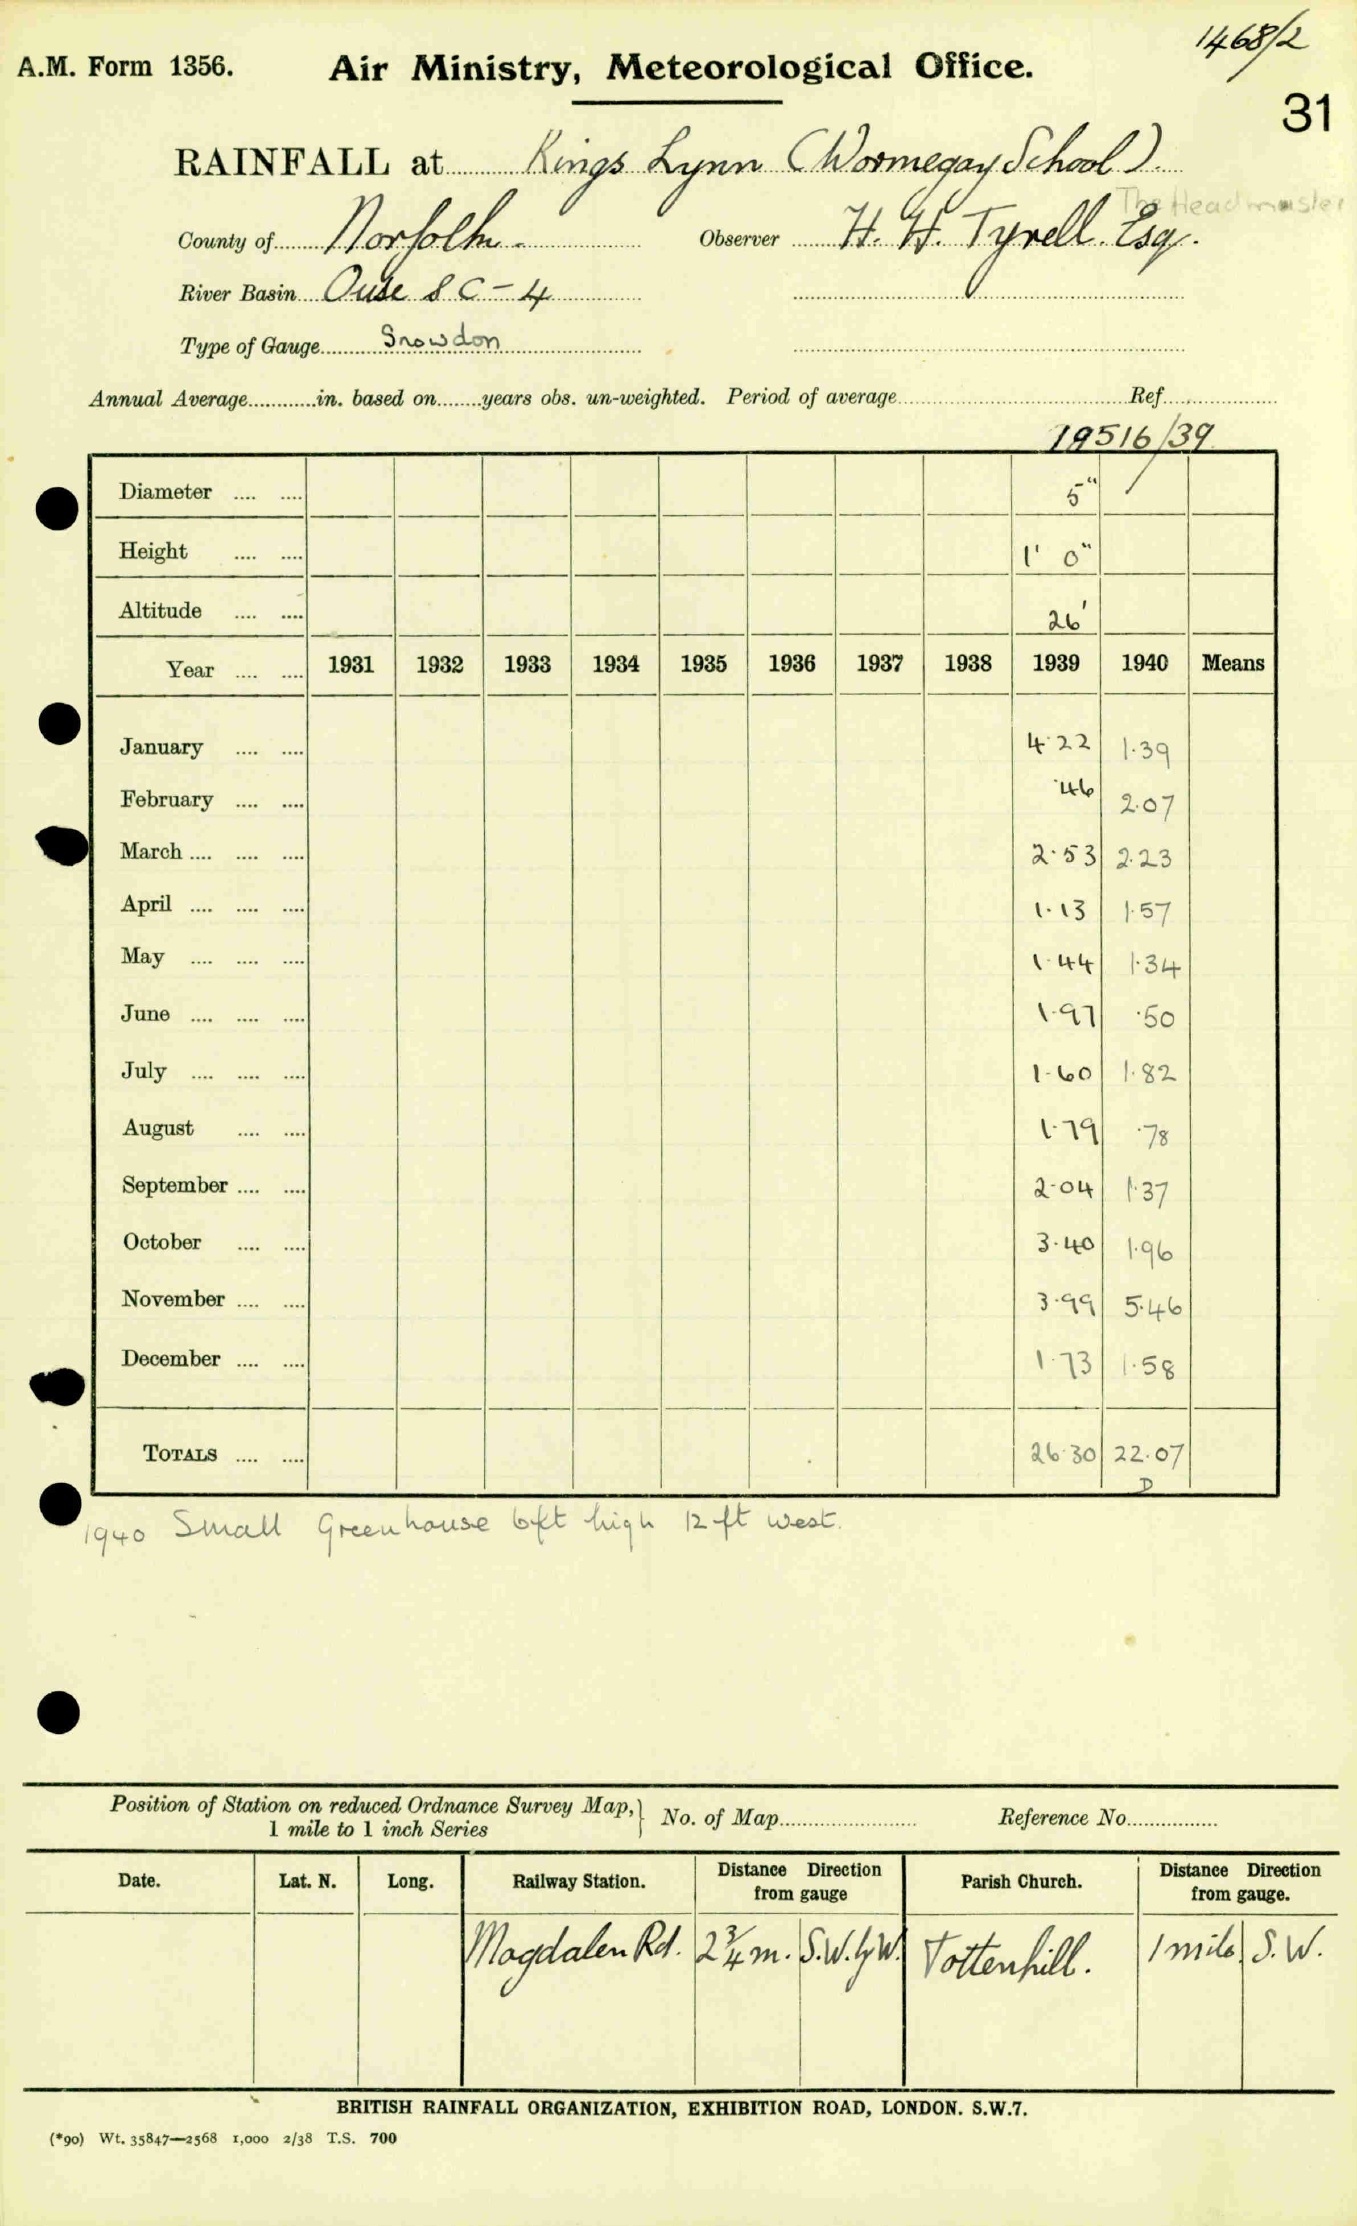 1468/2
A.M. Form 1356. Air Ministry, Meteorological Office.
31
RAINFALL at Kings Lynn (Wormegay School).
The Headmaster
County of Norfolk. Observer H. H. Tyrell. Esq.
River Basin Ouse 8 C-4
Type of Gauge Snowdon
Annual Average in. based on years obs. un-weighted. Period of average Ref.
19516/39
Diameter .... .... 5"
Height .... .... 1' 0"
Altitude .... .... 26'
Year .... .... 1931 1932 1933 1934 1935 1936 1937 1938 1939 1940 Means
January .... .... 4.22 1.39
February .... .... .46 2.07
March .... .... .... 2.53 2.23
April .... .... .... 1.13 1.57
May .... .... .... 1.44 1.34
June .... .... .... 1.97 .50
July .... .... .... 1.60 1.82
August .... .... 1.79 .78
September .... .... 2.04 1.37
October .... .... 3.40 1.96
November .... .... 3.99 5.46
December .... .... 1.73 1.58
TOTALS .... .... 26.30 22.07
D
1940 Small Greenhouse 6ft high 12 ft west.
Position of Station on reduced Ordnance Survey Map, } No. of Map Reference No.
1 mile to 1 inch Series
Date. Lat. N. Long. Railway Station. Distance Direction from gauge Parish Church. Distance Direction from gauge.
Magdalen Rd. 2¾ m. S.W. by W. Tottenhill. 1 mile. S.W.
BRITISH RAINFALL ORGANIZATION, EXHIBITION ROAD, LONDON. S.W.7.
(*90) Wt. 35847—2568 1,000 2/38 T.S. 700